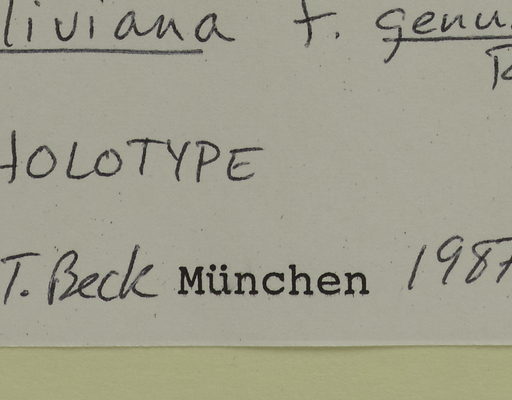 liviana f. genu
HOLOTYPE
T. Beck München 1987